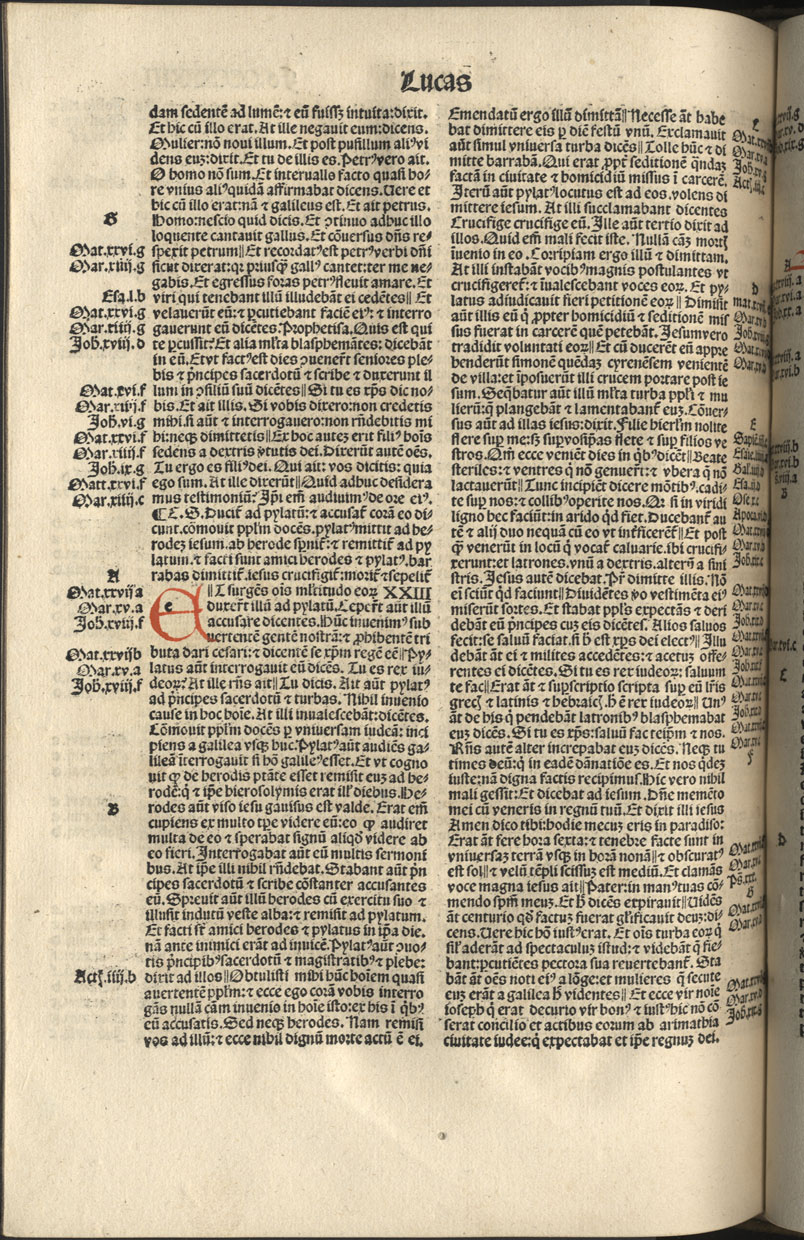 Lucas
dam sedentē ad lumē: ⁊ eū fuissꝫ intuita: dixit.
Et hic cū illo erat. At ille negauit eum: dicens.
Mulier: nō noui illum. Et post pusillum aliꝰ vi
dens euꝫ: dixit. Et tu de illis es. Petrꝰ vero ait.
O homo nō sum. Et interuallo facto quasi ho⸗
re vnius aliꝰ quidā affirmabat dicens. Uere et
hic cū illo erat: nā ⁊ galileus est. Et ait petrus.
Homo: nescio quid dicis. Et ꝯtinuo adhuc illo
loquente cantauit gallus. Et cōuersus dn̄s re⸗
spexit petrum ‖ Et recordatꝰ est petrꝰ verbi dn̄i
sicut dixerat: qꝛ priusꝗ̄ gallꝰ cantet: ter me ne⸗
gabis. Et egressus foras petrꝰ fleuit amare. Et
viri qui tenebant illū illudebāt ei cedētes ‖ Et
velauerūt eū: ⁊ ꝑcutiebant faciē eiꝰ: ⁊ interro
gauerunt eū dicētes: Prophetisa. Quis est qui
te ꝑcussit? Et alia ml̄ta blasphemātes: dicebāt
in eū. Et vt factꝰ est dies ꝯuenerūt seniores ple⸗
bis ⁊ pͥncipes sacerdotū ⁊ scribe ⁊ duxerunt il
lum in ꝯsiliū suū dicētes ‖ Si tu es xp̄s dic no⸗
bis. Et ait illis. Si vobis dixero: non credetis
mihi. si aūt ⁊ interrogauero: non rn̄debitis mi
hi: neqꝫ dimittetis ‖ Ex hoc auteꝫ erit filiꝰ hoīs
sedens a dextris v̓tutis dei. Dixerūt autē oēs.
Tu ergo es filiꝰ dei. Qui ait: vos dicitis: quia
ego sum. At ille dixerūt ‖ Quid adhuc desidera
mus testimoniū? Ip̄i em̄ audiuimꝰ de ore eiꝰ.
¶ C. S. Ducit̄ ad pylatū: ⁊ accusat̄ corā eo di
cunt. cōmouit ppl̄m docēs. pylatꝰ mittit ad he⸗
rodeꝫ iesum. ab herode sꝑnit̄: ⁊ remittit̄ ad py
latum. ⁊ facti sunt amici herodes ⁊ pylatꝰ. bar
rabas dimittit̄. iesus crucifigit̄: morit̄ ⁊ sepelit̄
e T surgēs oīs ml̄titudo eoꝝ XXIII
duxerūt illū ad pylatū. Ceperūt aūt illū
accusare dicentes. Hūc inuenimꝰ sub
uertentē gentē nostrā: ⁊ ꝓhibentē tri
buta dari cesari: ⁊ dicentē se xp̄m regē eē ‖ Py⸗
latus aūt interrogauit eū dicēs. Tu es rex iu⸗
deoꝝ? At ille rn̄s ait ‖ Tu dicis. Ait aūt pylatꝰ
ad pͥncipes sacerdotū ⁊ turbas. Nihil inuenio
cause in hoc hoīe. At illi inualescebāt: dicētes.
Cōmouit ppl̄m docēs ꝑ vniuersam iudeā: inci
piens a galilea vsqꝫ huc. Pylatꝰ aūt audiēs ga⸗
lileā īterrogauit si hō galileꝰ esset. Et vt cogno
uit ꝙ de herodis ptāte esset remisit euꝫ ad he⸗
rodē: q̄ ⁊ ip̄e hierosolymis erat illꝭ diebus. He⸗
rodes aūt viso iesu gauisus est valde. Erat em̄
cupiens ex multo tp̄e videre eū: eo ꝙ audiret
multa de eo ⁊ sperabat signū aliqd̓ videre ab
eo fieri. Interrogabat aūt eū multis sermoni
bus. At ip̄e illi nihil rn̄debat. Stabant aūt pͥn
cipes sacerdotū ⁊ scribe cōstanter accusantes
eū. Spreuit aūt illū herodes cū exercitu suo ⁊
illusit indutū veste alba: ⁊ remisit ad pylatum.
Et facti sūt amici herodes ⁊ pylatus in ip̄a die.
nā ante inimici erāt ad inuicē. Pylatꝰ aūt ꝯuo⸗
tis pͥncipibꝰ sacerdotū ⁊ magistratibꝰ ⁊ plebe:
dixit ad illos ‖ Obtulisti mihi hūc hoīem quasi
auertentē ppl̄m: ⁊ ecce ego corā vobis interro
gās nullā cām inuenio in hoīe isto: ex his ī qͥbꝰ
eū accusatis. Sed neqꝫ herodes. Nam remisi
vos ad illū: ⁊ ecce nihil dignū morte actū ē ei.
B
Mat.xxvi.g
Mar.xiiij.g
Esa.l.b
Mat.xxvi.g
Mar.xiiij.g
Joh.xviij.d
Mat.xvi.f
Mar.xiiij.f
Joh.vi.g
Mat.xxvi.f
Mar.xiiij.f
Joh.ix.g
Matt.xxvi.f
Mar.xiiij.c
A
Mat.xxvij a
Mar.xv.a
Joh.xviij.f
Mat.xxvij b
Mar.xv.a
Joh.xviij.f
B
Actꝭ.iiij.b
Emendatū ergo illū dimittā ‖ Necesse āt habe
bat dimittere eis ꝑ diē festū vnū. Exclamauit
aūt simul vniuersa turba dicēs ‖ Tolle hūc ⁊ di
mitte barrabā. Qui erat ꝓpt̓ seditionē qͣndaꝫ
factā in ciuitate ⁊ homicidiū missus ī carcerē.
Iterū aūt pylatꝰ locutus est ad eos. volens di
mittere iesum. At illi succlamabant dicentes
Crucifige crucifige eū. Ille aūt tertio dixit ad
illos. Quid em̄ mali fecit iste. Nullā cāꝫ mortꝭ
īuenio in eo. Corripiam ergo illū ⁊ dimittam.
At illi instabāt vocibꝰ magnis postulantes vt
crucifigeret̄: ⁊ īualescebant voces eoꝝ. Et py⸗
latus adiudicauit fieri petitionē eoꝝ ‖ Dimisit
aūt illis eū q̄ ꝓpter homicidiū ⁊ seditionē mis
sus fuerat in carcerē quē petebāt. Jesum vero
tradidit voluntati eoꝝ ‖ Et cū ducerēt eū appre
henderūt simonē quēdaꝫ cyrenēsem venientē
de villa: et īposuerūt illi crucem portare post ie
sum. Seqͣbatur aūt illū ml̄ta turba ppl̄i ⁊ mu
lierū: q̄ plangebāt ⁊ lamentabant̄ euꝫ. Cōuer⸗
sus aūt ad illas iesus: dixit. Filie hierl̄m nolite
flere suꝑ me: sꝫ suꝑ vosip̄as flete ⁊ suꝑ filios ve
stros. Qm̄ ecce veniēt dies in qͥbꝰ dicēt ‖ Beate
steriles: ⁊ ventres q̄ nō genuerūt: ⁊ vbera q̄ nō
lactauerūt ‖ Tunc incipiēt dicere mōtibꝰ. cadi⸗
te suꝑ nos: ⁊ collibꝰ operite nos. Qꝛ si in viridi
ligno hec faciūt: in arido qd̓ fiet. Ducebant̄ au
tē ⁊ alij duo nequā cū eo vt īterficerēt̄ ‖ Et post
ꝗ̄ venerūt in locū q̄ vocat̄ caluarie. ibi crucifi⸗
xerunt: et latrones. vnū a dextris. alterū a sini
stris. Jesus autē dicebat. Pr̄ dimitte illis. Nō
ei sciūt qd̓ faciunt ‖ Diuidētes v̓o vestimēta eiꝰ
miserūt sortes. Et stabat ppl̄s expectās ⁊ deri
debāt eū pͥncipes cuꝫ eis dicētes. Alios saluos
fecit: se saluū faciat. si h̓ est xp̄s dei electꝰ ‖ Illu
debāt āt ei ⁊ milites accedētes: ⁊ acetuꝫ offe⸗
rentes ei dicētes. Si tu es rex iudeoꝝ: saluum
te fac ‖ Erat āt ⁊ suꝑscriptio scripta suꝑ eū lr̄is
grecꝭ ⁊ latinis ⁊ hebraicꝭ. h̓ ē rex iudeoꝝ ‖ Unꝰ
āt de his q̄ pendebāt latronibꝰ blasphemabat
euꝫ dicēs. Si tu es xp̄s: saluū fac teip̄m ⁊ nos.
Rn̄s autē alter increpabat euꝫ dicēs. Neqꝫ tu
times deū: q̄ in eadē dānatiōe es. Et nos qͥdeꝫ
iuste: nā digna factis recipimus. Hic vero nihil
mali gessit: Et dicebat ad iesum. Dn̄e memēto
mei cū veneris in regnū tuū. Et dixit illi iesus
Amen dico tibi: hodie mecuꝫ eris in paradiso:
Erat āt fere hora sexta: ⁊ tenebre facte sunt in
vniuersaꝫ terrā vsqꝫ in horā nonā ‖ ⁊ obscuratꝰ
est sol ‖ ⁊ velū tēpli scissuꝫ est mediū. Et clamās
voce magna iesus ait ‖ Pater: in manꝰ tuas cō⸗
mendo spm̄ meuꝫ. Et h̓ dicēs expirauit ‖ Uidēs
āt centurio qd̓ factuꝫ fuerat gl̄ificauit deuꝫ: di⸗
cens. Uere hic hō iustꝰ erat. Et oīs turba eoꝝ q̄
sil̄ aderāt ad spectaculuꝫ istud: ⁊ videbāt q̄ fie⸗
bant: ꝑcutiētes pectora sua reuertebant̄. Sta
bāt āt oēs noti eiꝰ a lōge: et mulieres q̄ secute
euꝫ erāt a galilea h̓ videntes ‖ Et ecce vir noīe
ioseph q̄ erat decurio vir bonꝰ ⁊ iustꝰ hic nō cō
serat concilio et actibus eorum ab arimathia
ciuitate iudee: q̄ expectabat et ip̄e regnuꝫ dei.